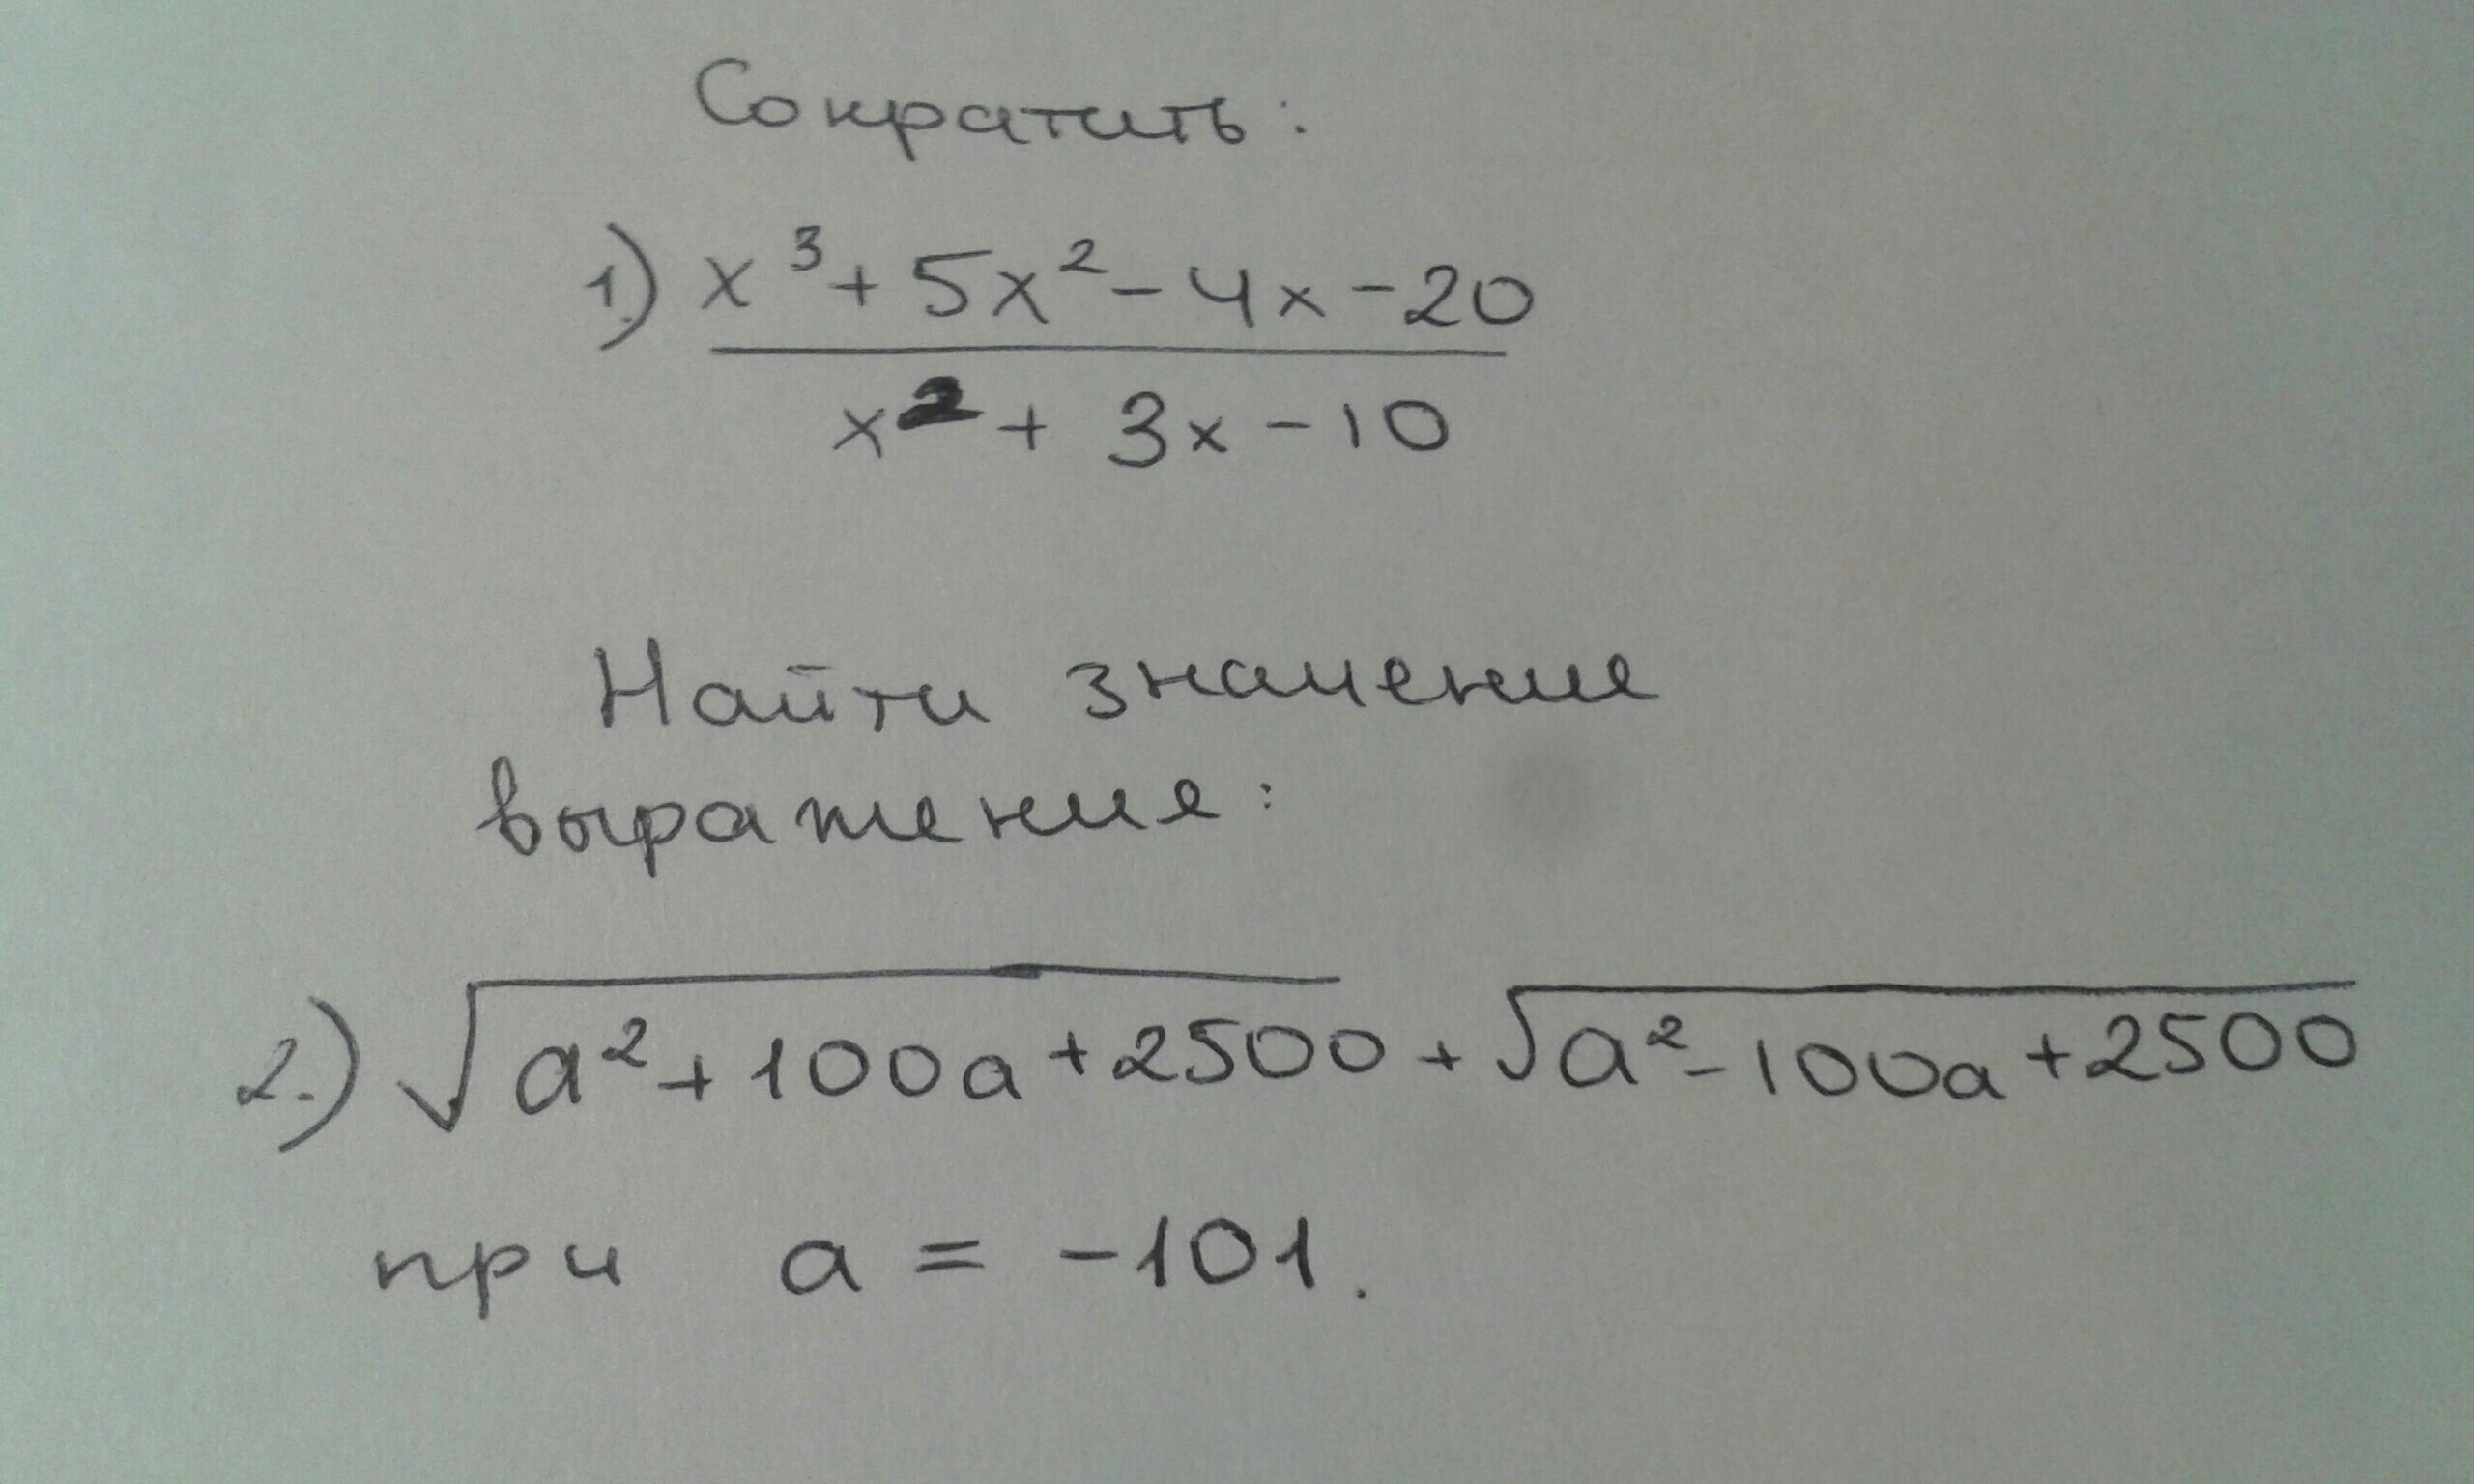 Сократить:
1.) x³ + 5x² - 4x - 20
x² + 3x - 10
Найти значение
выражение:
2.) √a² + 100a + 2500 + √a² - 100a + 2500
при a = -101.